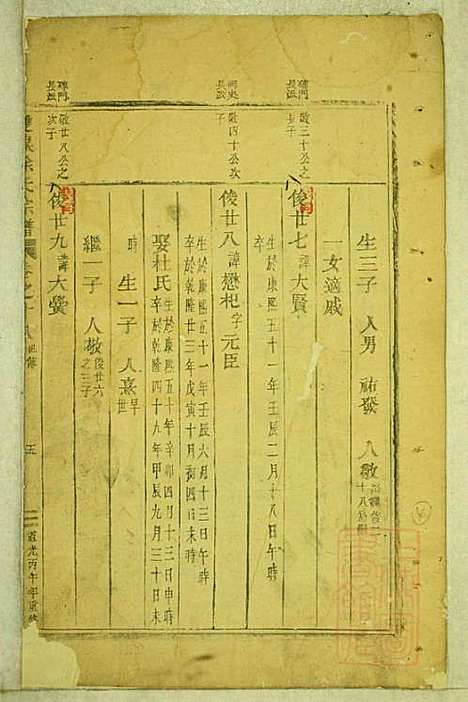 磚門
長派
敬三十公之
長子
生三子 人男 祐發 人敬
一女適戚
俊廿七諱大賢
生於康熙五十一年壬辰二月十八日午時
卒
長派
敬四十公次
子
俊廿八諱懋杞字元臣
生於康熙五十一年壬辰六月十三日午時
卒於乾隆二十三年戊寅十月初四日未時
娶杜氏生於康熙五十年辛卯四月十三日申時
卒於乾隆四十九年甲辰九月三十日未
時
生一子 人熹早
世
繼一子 人敬俊廿六
之三子
磚門
長派
敬廿八公之
次子
俊廿九諱大
徐氏宗譜
世傳
五
道光丙午年重修